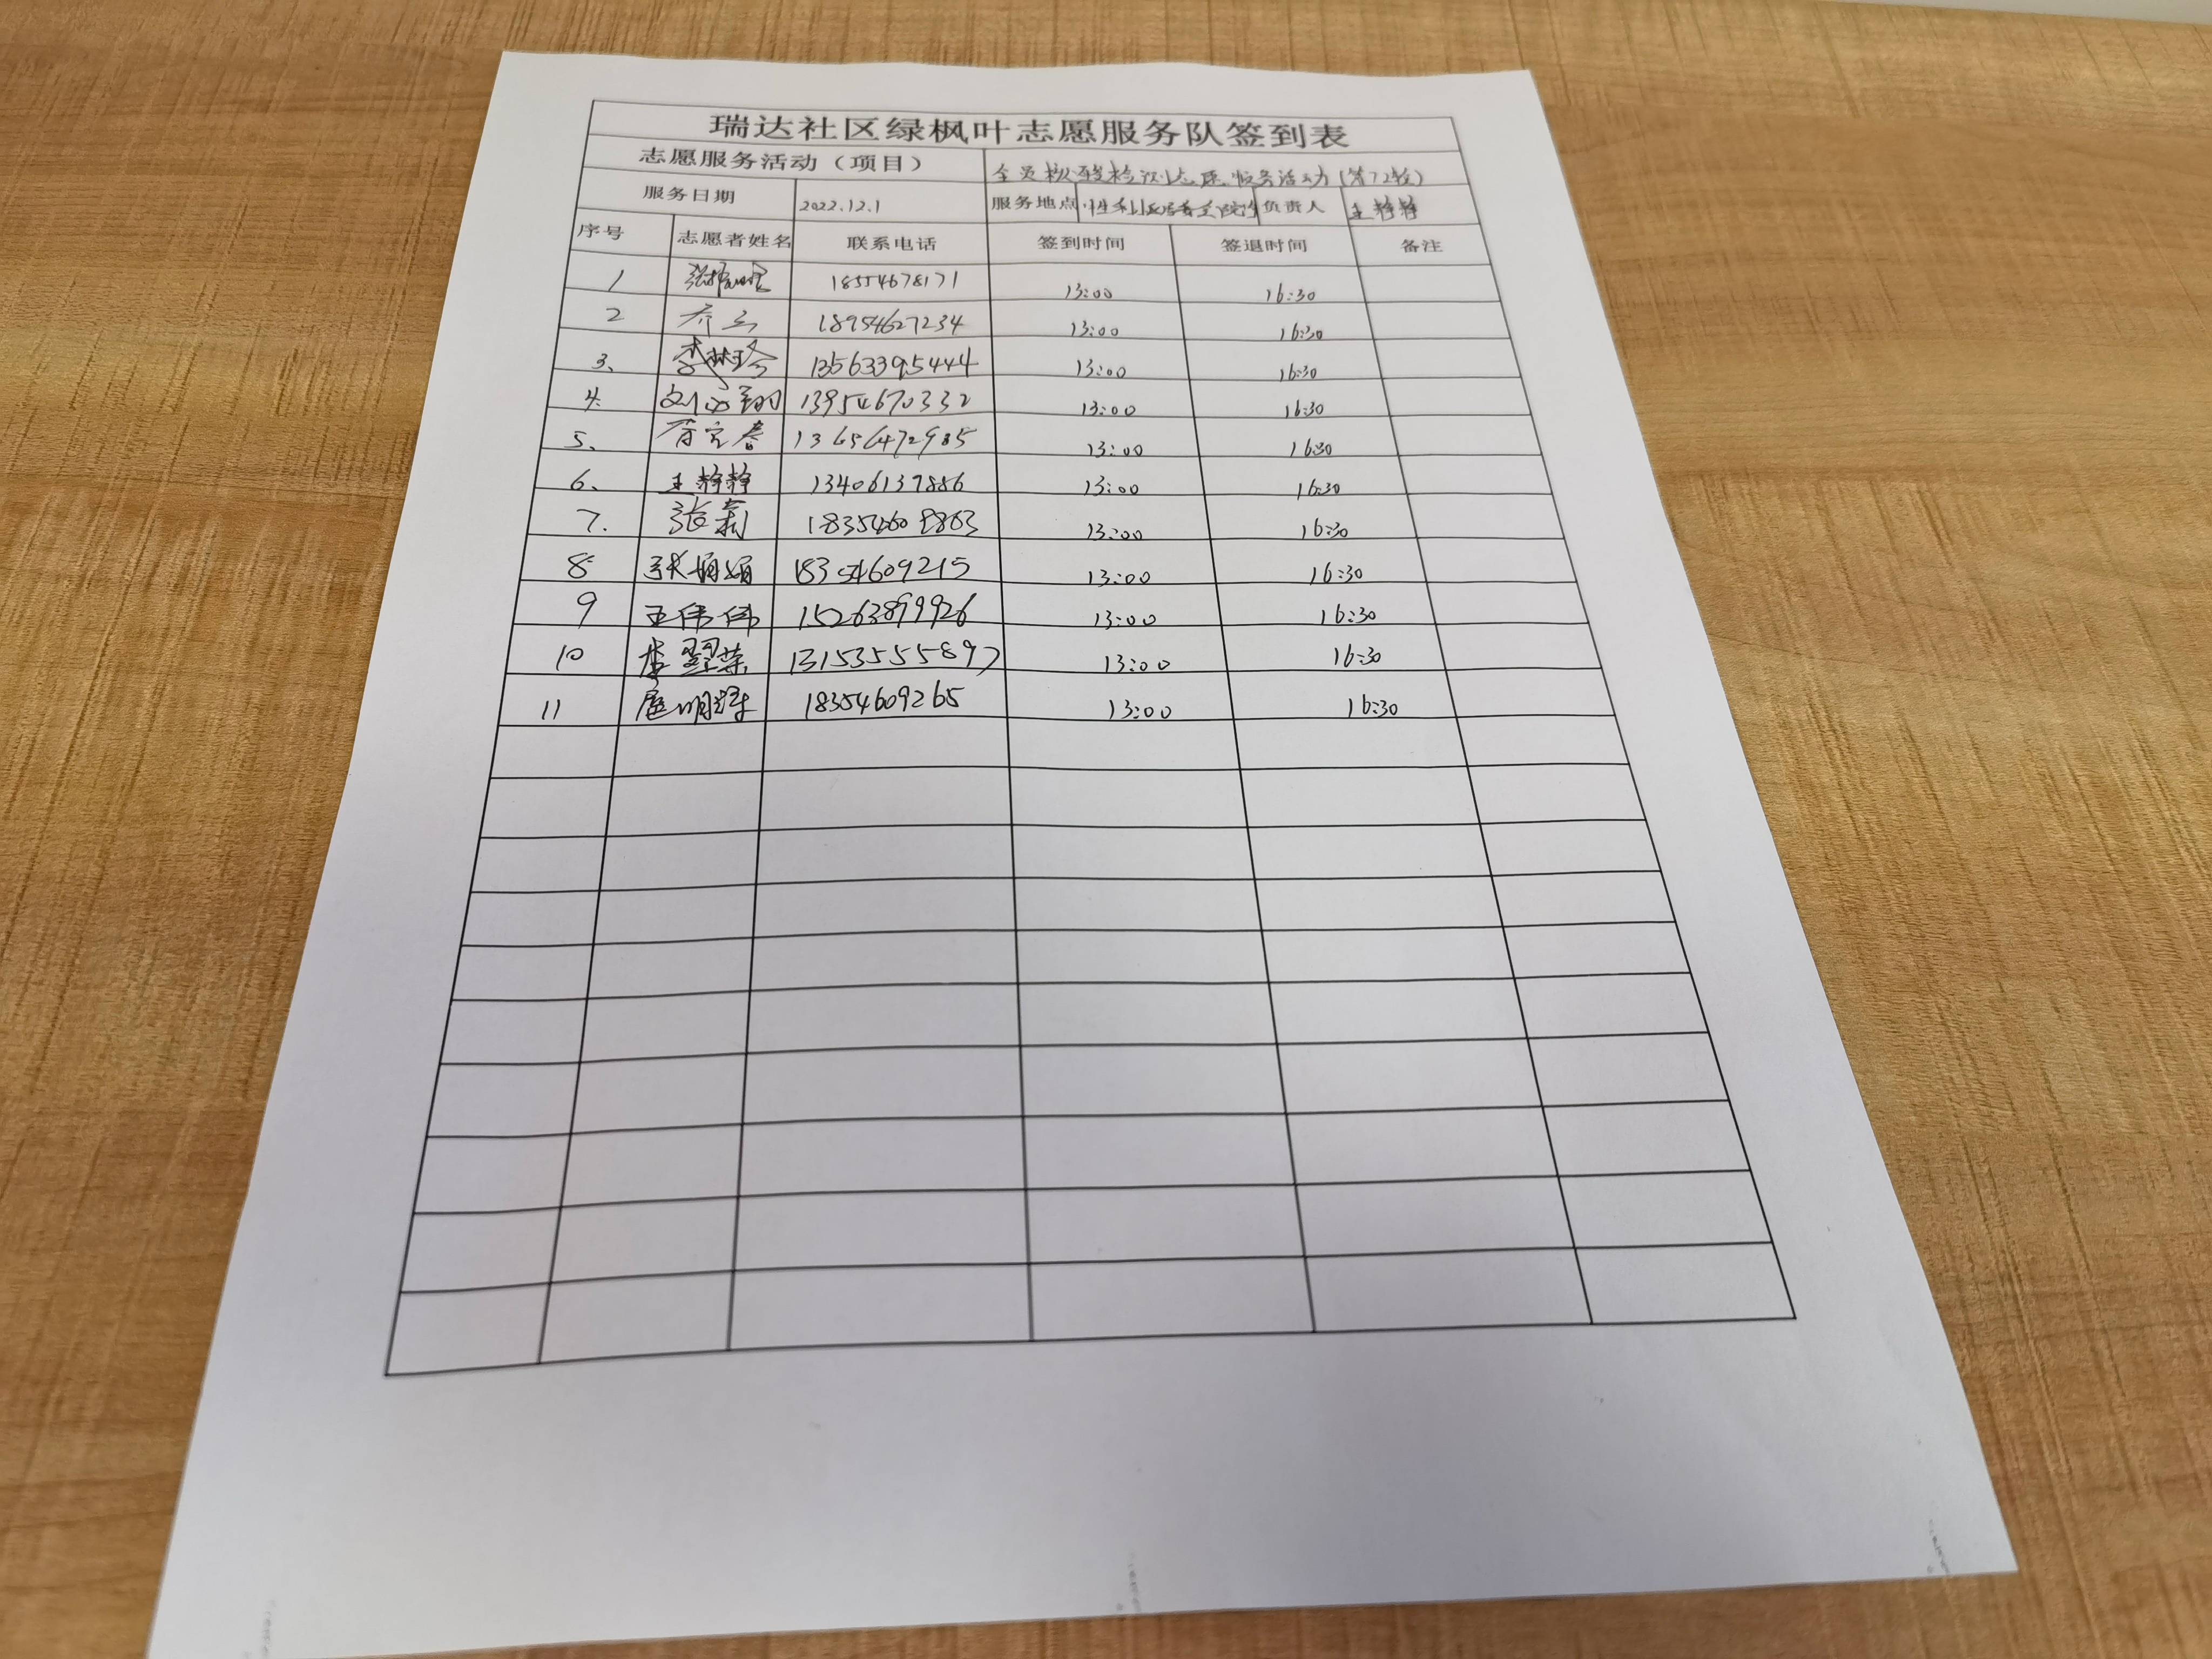 瑞达社区绿枫叶志愿服务队签到表
志愿服务活动（项目） 全员核酸检测志愿服务活动（第72轮）
服务日期 2022.12.1 服务地点 负责人 王静静
序号 志愿者姓名 联系电话 签到时间 签退时间 备注
1 18554678171 13:00 16:30
2 乔云 18954627234 13:00 16:30
3、 李林玲 13563395444 13:00 16:30
4. 13954670332 13:00 16:30
5、 13656472985 13:00 16:30
6、 王静静 13406137886 13:00 16:30
7. 张莉 18354609863 13:00 16:30
8. 张娟娟 18354609215 13:00 16:30
9 王伟伟 15263899926 13:00 16:30
10 李翠荣 13153555897 13:00 16:30
11 扈明泽 18354609265 13:00 16:30